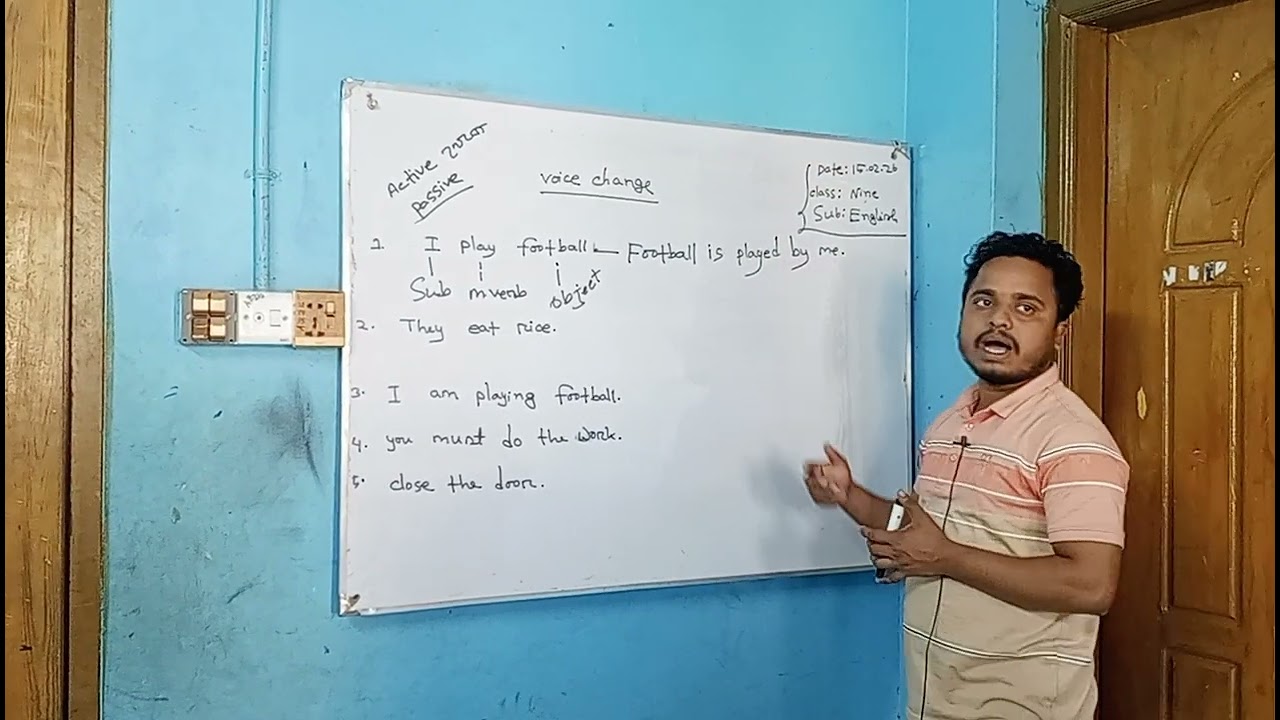 Active
passive
voice change
Date: 15.02.26
class: Nine
Sub: English
1. I play football — Football is played by me.
Sub m verb object
2. They eat rice.
3. I am playing football.
4. you must do the work.
5. close the door.